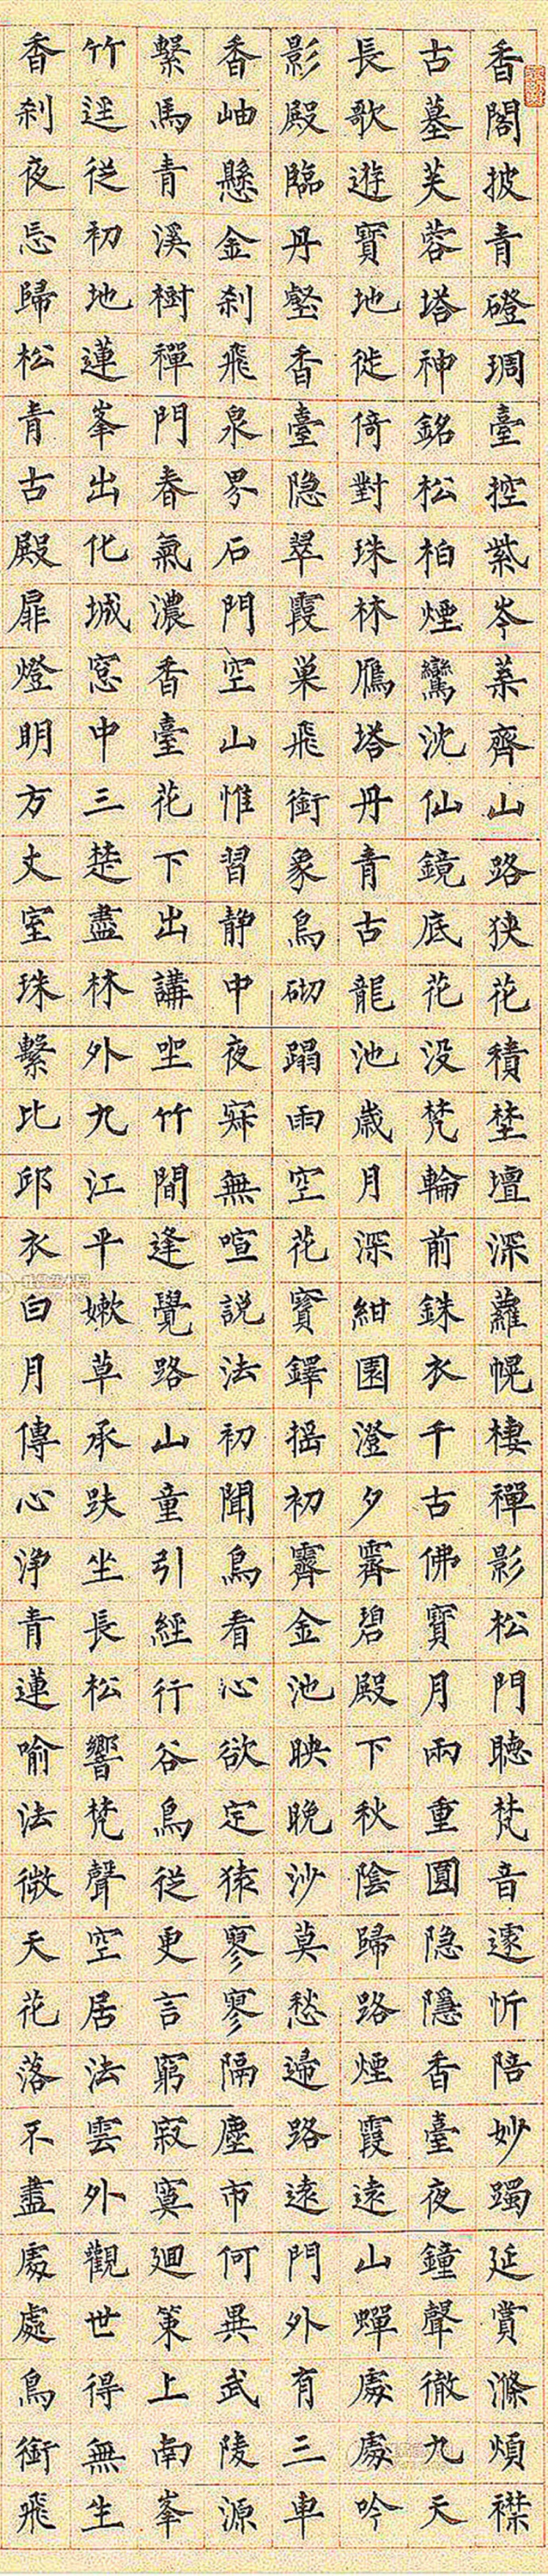 香閣披青磴琱臺控紫岑葉齊山路狹花積埜壇深蘿幌棲禪影松門聴梵音遽忻陪妙躅延賞滌煩襟
古墓芙蓉塔神銘松柏煙鸞沈仙鏡底花没梵輪前銖衣千古佛寳月兩重圓隐隱香臺夜鐘聲徹九天
長歌遊寳地徙倚對珠林鴈塔丹青古龍池歳月深紺園澄夕霽碧殿下秋陰歸路煙霞遠山蟬處處吟
影殿臨丹壑香臺隐翠霞巢飛銜象鳥砌蹋雨空花寳鐸摇初霽金池映晚沙莫愁歸路遠門外有三車
香岫懸金刹飛泉界石門空山惟習静中夜寂無喧説法初聞鳥看心欲定猿寥寥隔塵市何異武陵源
繫馬青溪樹禪門春氣濃香臺花下出講坐竹間逢覺路山童引經行谷鳥從更言窮寂寞迴策上南峯
竹逕從初地蓮峯出化城窓中三楚盡林外九江平嫰草承趺坐長松響梵聲空居法雲外觀世得無生
香刹夜忘歸松青古殿扉燈明方丈室珠繫比邱衣白月傳心浄青蓮喻法微天花落不盡處處鳥銜飛